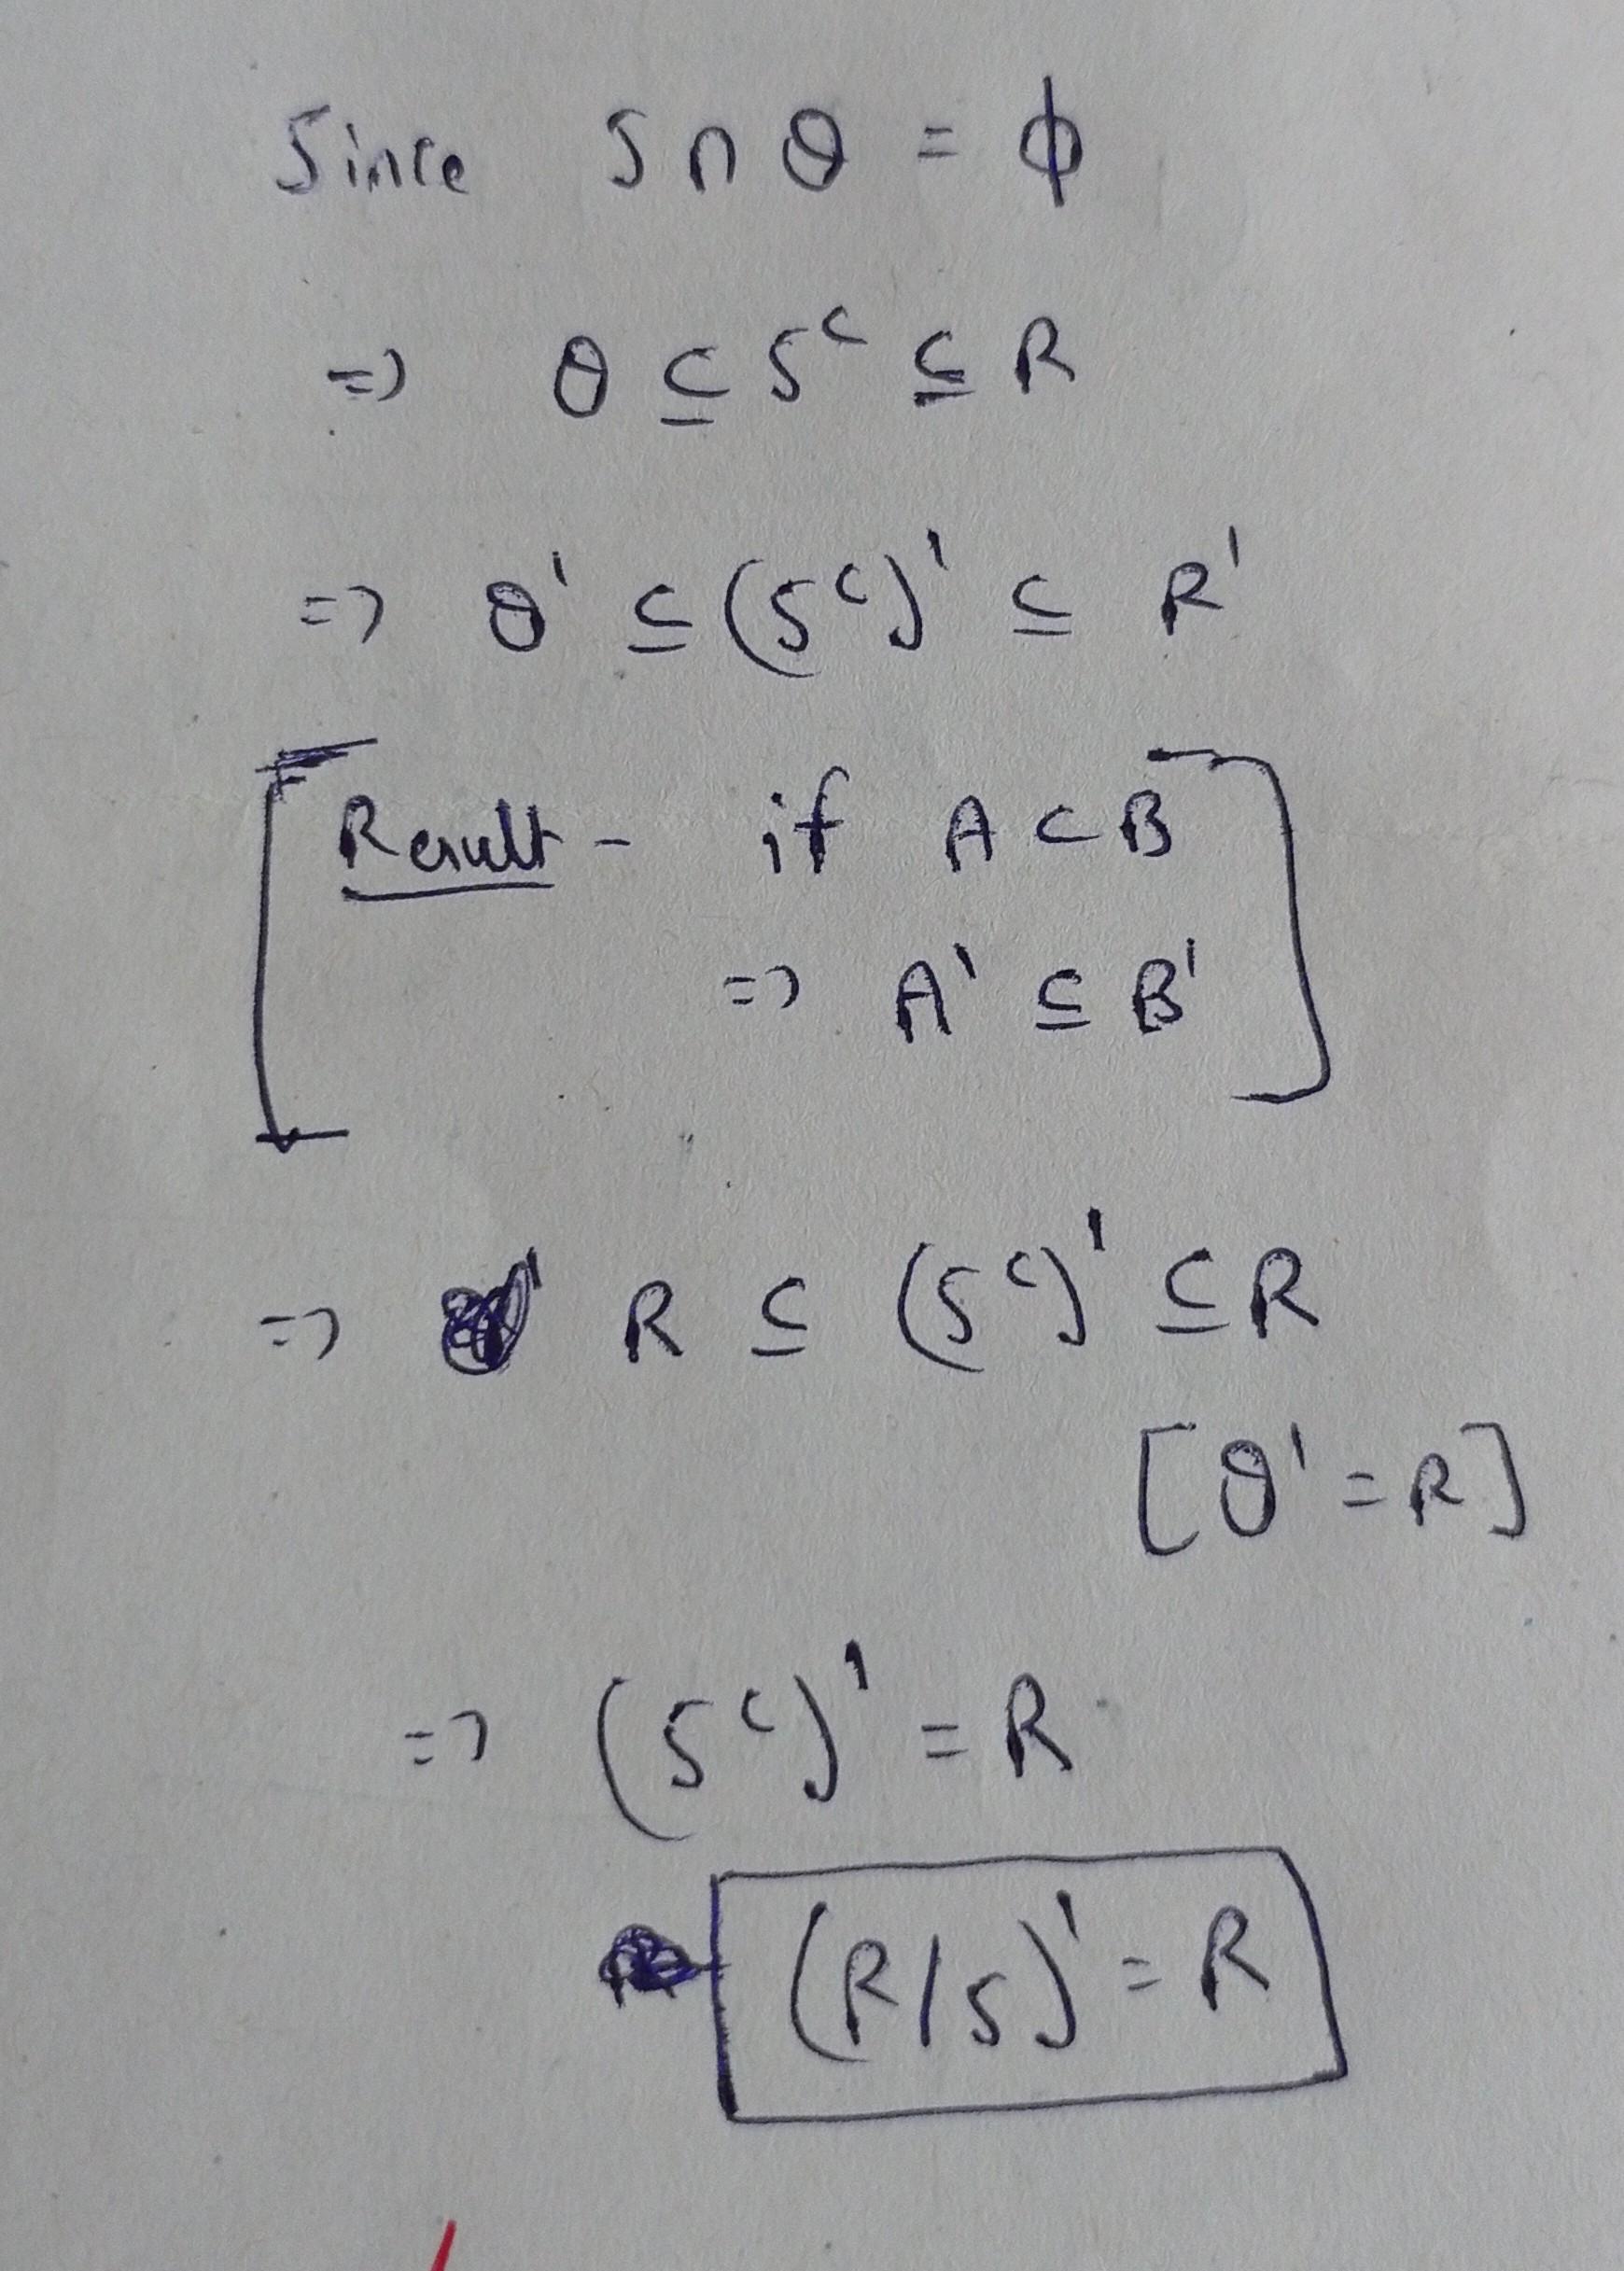 Since S ∩ θ = ϕ
=> θ ⊆ S^c ⊆ R
=> θ' ⊆ (S^c)' ⊆ R'
[Result - if A ⊂ B
=> A' ⊆ B']
=> R ⊆ (S^c)' ⊆ R
[θ' = R]
=> (S^c)' = R
(R/S)' = R